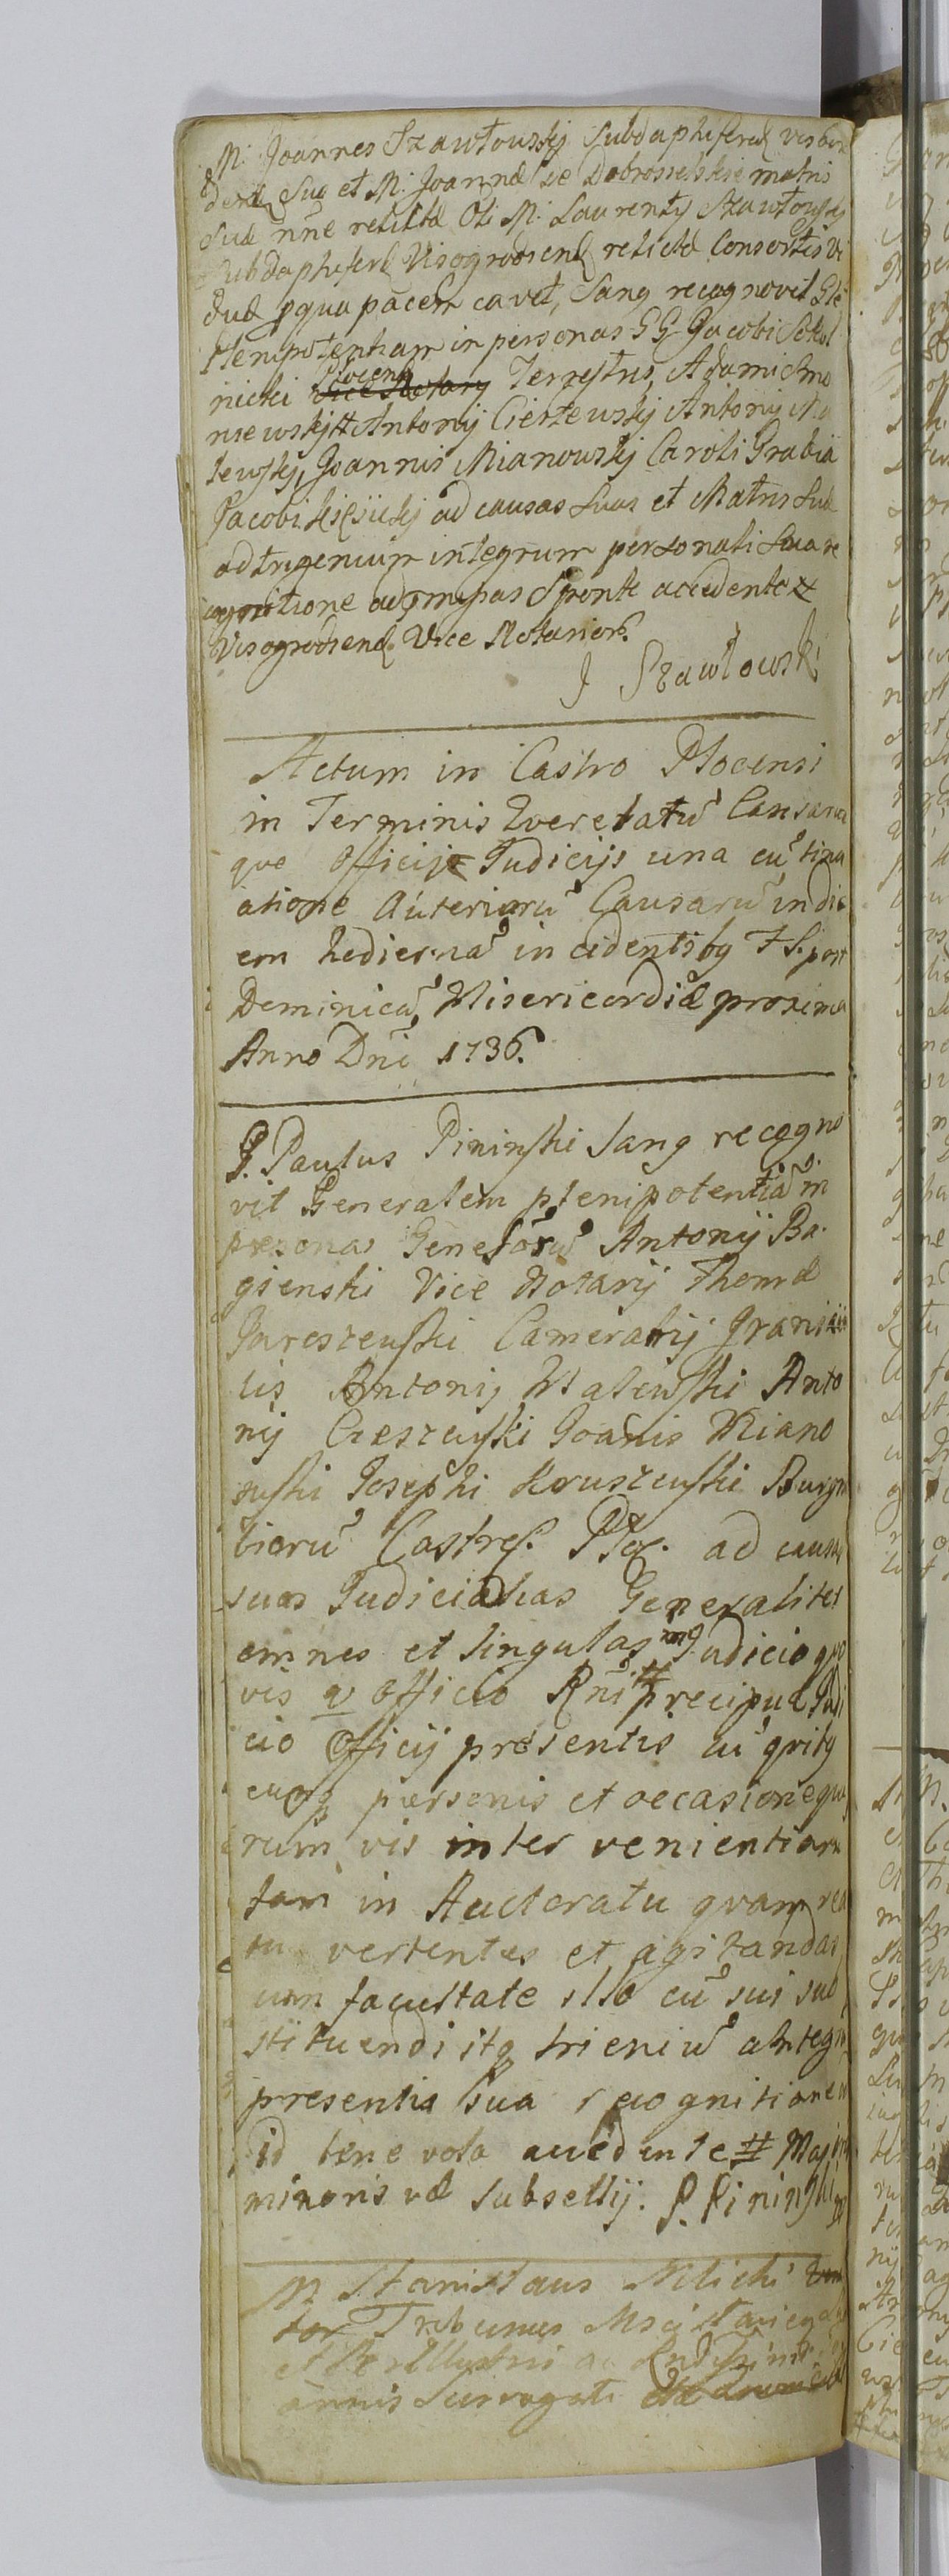 M. Joannes Szawłouskj Subdaphiferd visbur
dend Suo et M. Joannæ de Dobrosselskie matris
Suæ nñe relictæ Oli M. Laurentÿ Szawłouskj
Subdaphiferi Visogrodsend relictæ Consortis Vi
duæ pqua pacem cavet, Sang recognovit Gle
Plenipotentiam in personas GG Jacobi Sokol
nicki Plocens Vice Notary Terrestris, Adami Chmo
niewskj # Antonij Cieszewskj Antonij Ma
lewskj, Joannis Mianowskj Caroli Grabia
Jacobi ad causas Suas et Matris Suæ
ad trigenium integrum personali Sua re
cognitione ad pmissas Sponte accedente #
Visogrodsend Vice Notarior
J Szawłowski
Actum in Castro Plocensi
in Terminis Querelatũ Causarũ
que Officij Judicijs una cũ tinu
atione Anteriorũ Causarũ in di
em hodiernã incidentibq F S. post
Dominicã Misericordiæ proxima
Anno Dñi 1736.
G. Paulus Pininski Sang recogno
vit Generalem plenipotentiã in
personas Generosorũ Antonij Ba
gienski Vice Notarij Thomæ
Jaroszewski Camerarij Granicia
lis Antonij Malewski Anto
nij Cieszewski Joãnis Miano
wski Josephi Kruszewski Burgra
biorũ Castres. Ploc. ad causas
suas Judicialias Generaliter
omnes et singulas in Judicio quo
vis q officio Rñi # precipuæ Judi
cio Officij presentis cũ qvibq
cunq personis et occasione quo
rum vis inter venientiarũ
tam in Auctoratu qvam rea
tu vertentes et agitandas
cum facultate slso cũ sui sub
stituendi itq trieniũ ahtegr
presentis sua recognitione
id bene vola accedente # Majoris
minoris vel subsellij. P. Pininski
M Stanislaus Milicki
Tribunus
et Perillustri ac
annis Surrogati